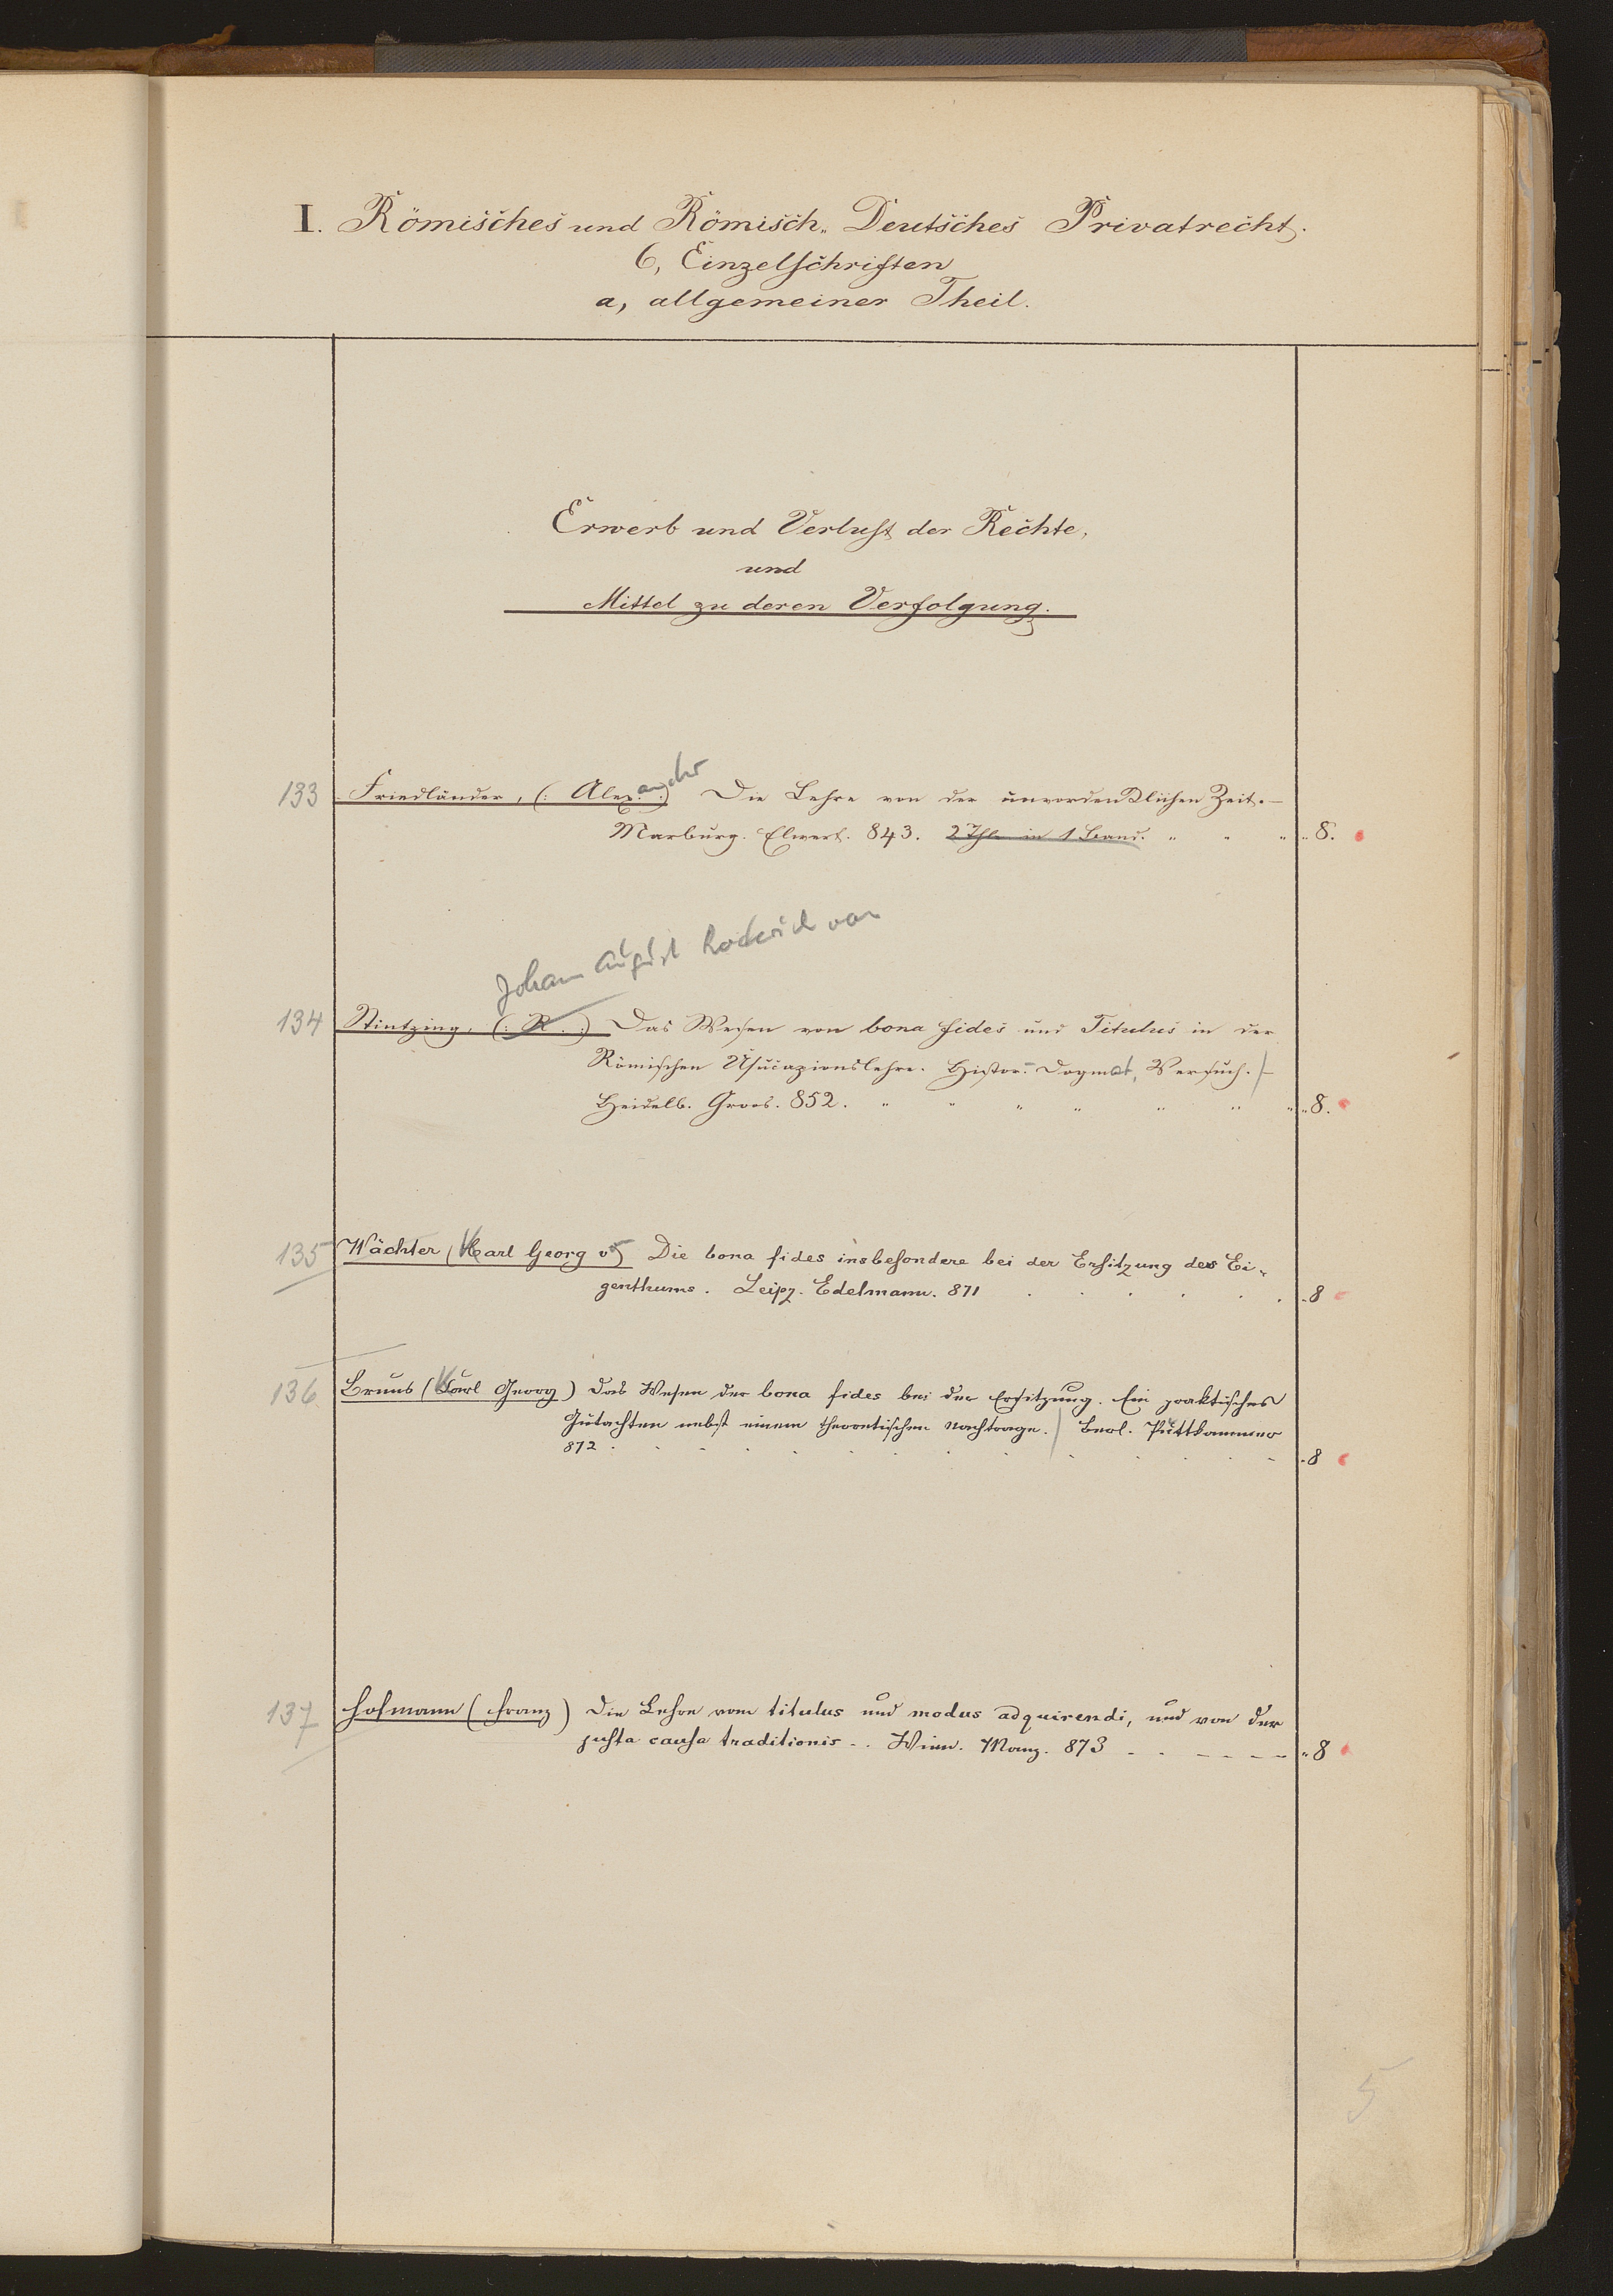 I. Römisches und Römisch-Deutsches Privatrecht.
6, Einzelschriften
a, allgemeiner Theil.
Erwerb und Verlust der Rechte,
und
Mittel zu deren Verfolgung.
133 Friedländer, (: Alexander :) Die Lehre von der unvordenklichen Zeit. –
Marburg. Elwert. 843. 2 Thle in 1 Band. " " " " 8.
Johann August Roderich von
134 Stintzing, (: R. :) Das Wesen von bona fides und Titulus in der
Römischen Usucapionslehre. Histor.- Dogmat, Versuch. –
Heidelb. Groos. 852. " " " " " " " " 8.
135 Wächter (Karl Georg v.) Die bona fides insbesondere bei der Ersitzung des Ei-
genthums. Leipz. Edelmann. 871 . . . . . . 8
136 Bruns (Karl Georg) Das Wesen der bona fides bei der Ersitzung. Ein praktisches
Gutachten nebst einem theoretischen Nachtrage. Berl. Puttkammer
872 . . . . . . . . . . . 8
137 Hofmann (Franz) Die Lehre vom titulus und modus adquirendi, und von der
justa causa traditionis. . Wien. Manz. 873 - - - - - - " 8
5